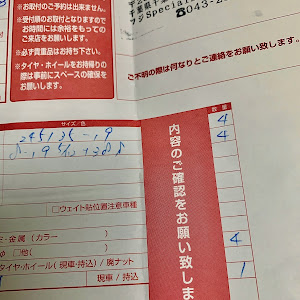 ※お取付のご予約は出来ません。
※受付のお取付となりますので
お時間には余裕をもっての
ご来店をお願いします。
※必ず貴重品はお持ち下さい。
※タイヤ・ホイールをお持帰り
の際は事前にスペースの確保を
お願いします。
Special
☎043-2
ご不明の際は何なりとご連絡をお願い致します。
サイズ/色
数量
245/35-19
4
4
内容のご確認をお願い致しま
□ウェイト貼位置注意車種
正・金属(カラー )
4
□他( )
タイヤ・ホイール(現車・持込)/廃ナット
1
現車/持込